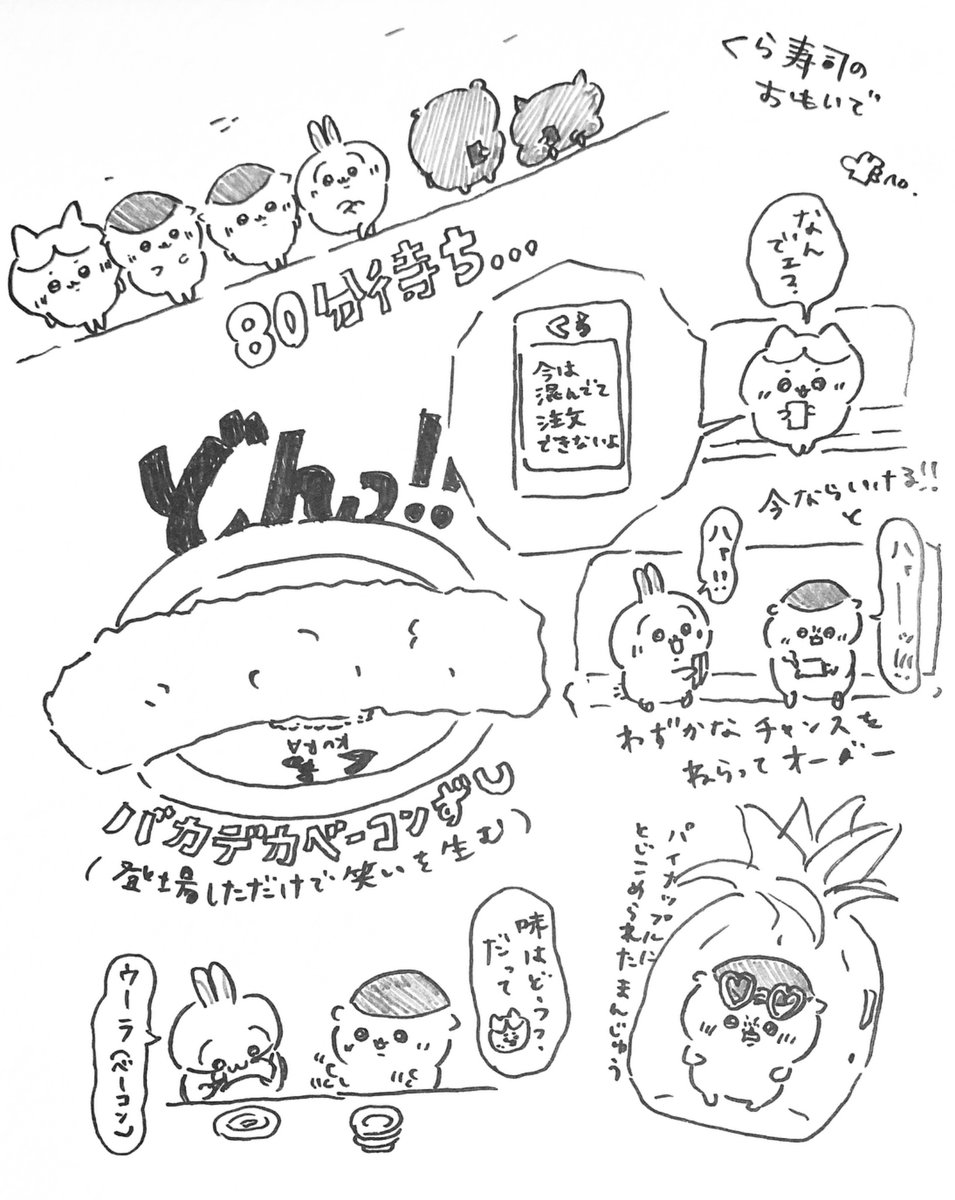 くら寿司の
おもいで
80分待ち...
なん
でェ?
くら
今は
混んでて
注文
できないよ
今ならいける!!
と
ハァ!!
ハァーーッ!!
わずかなチャンスを
ねらってオーダー
どんっ!!
KURA
バカデカベーコンずし
(登場しただけで笑いを生む)
味はどうっ、
だって
ウーラ(ベーコン)
パイナップルに
とじこめられたまんじゅう